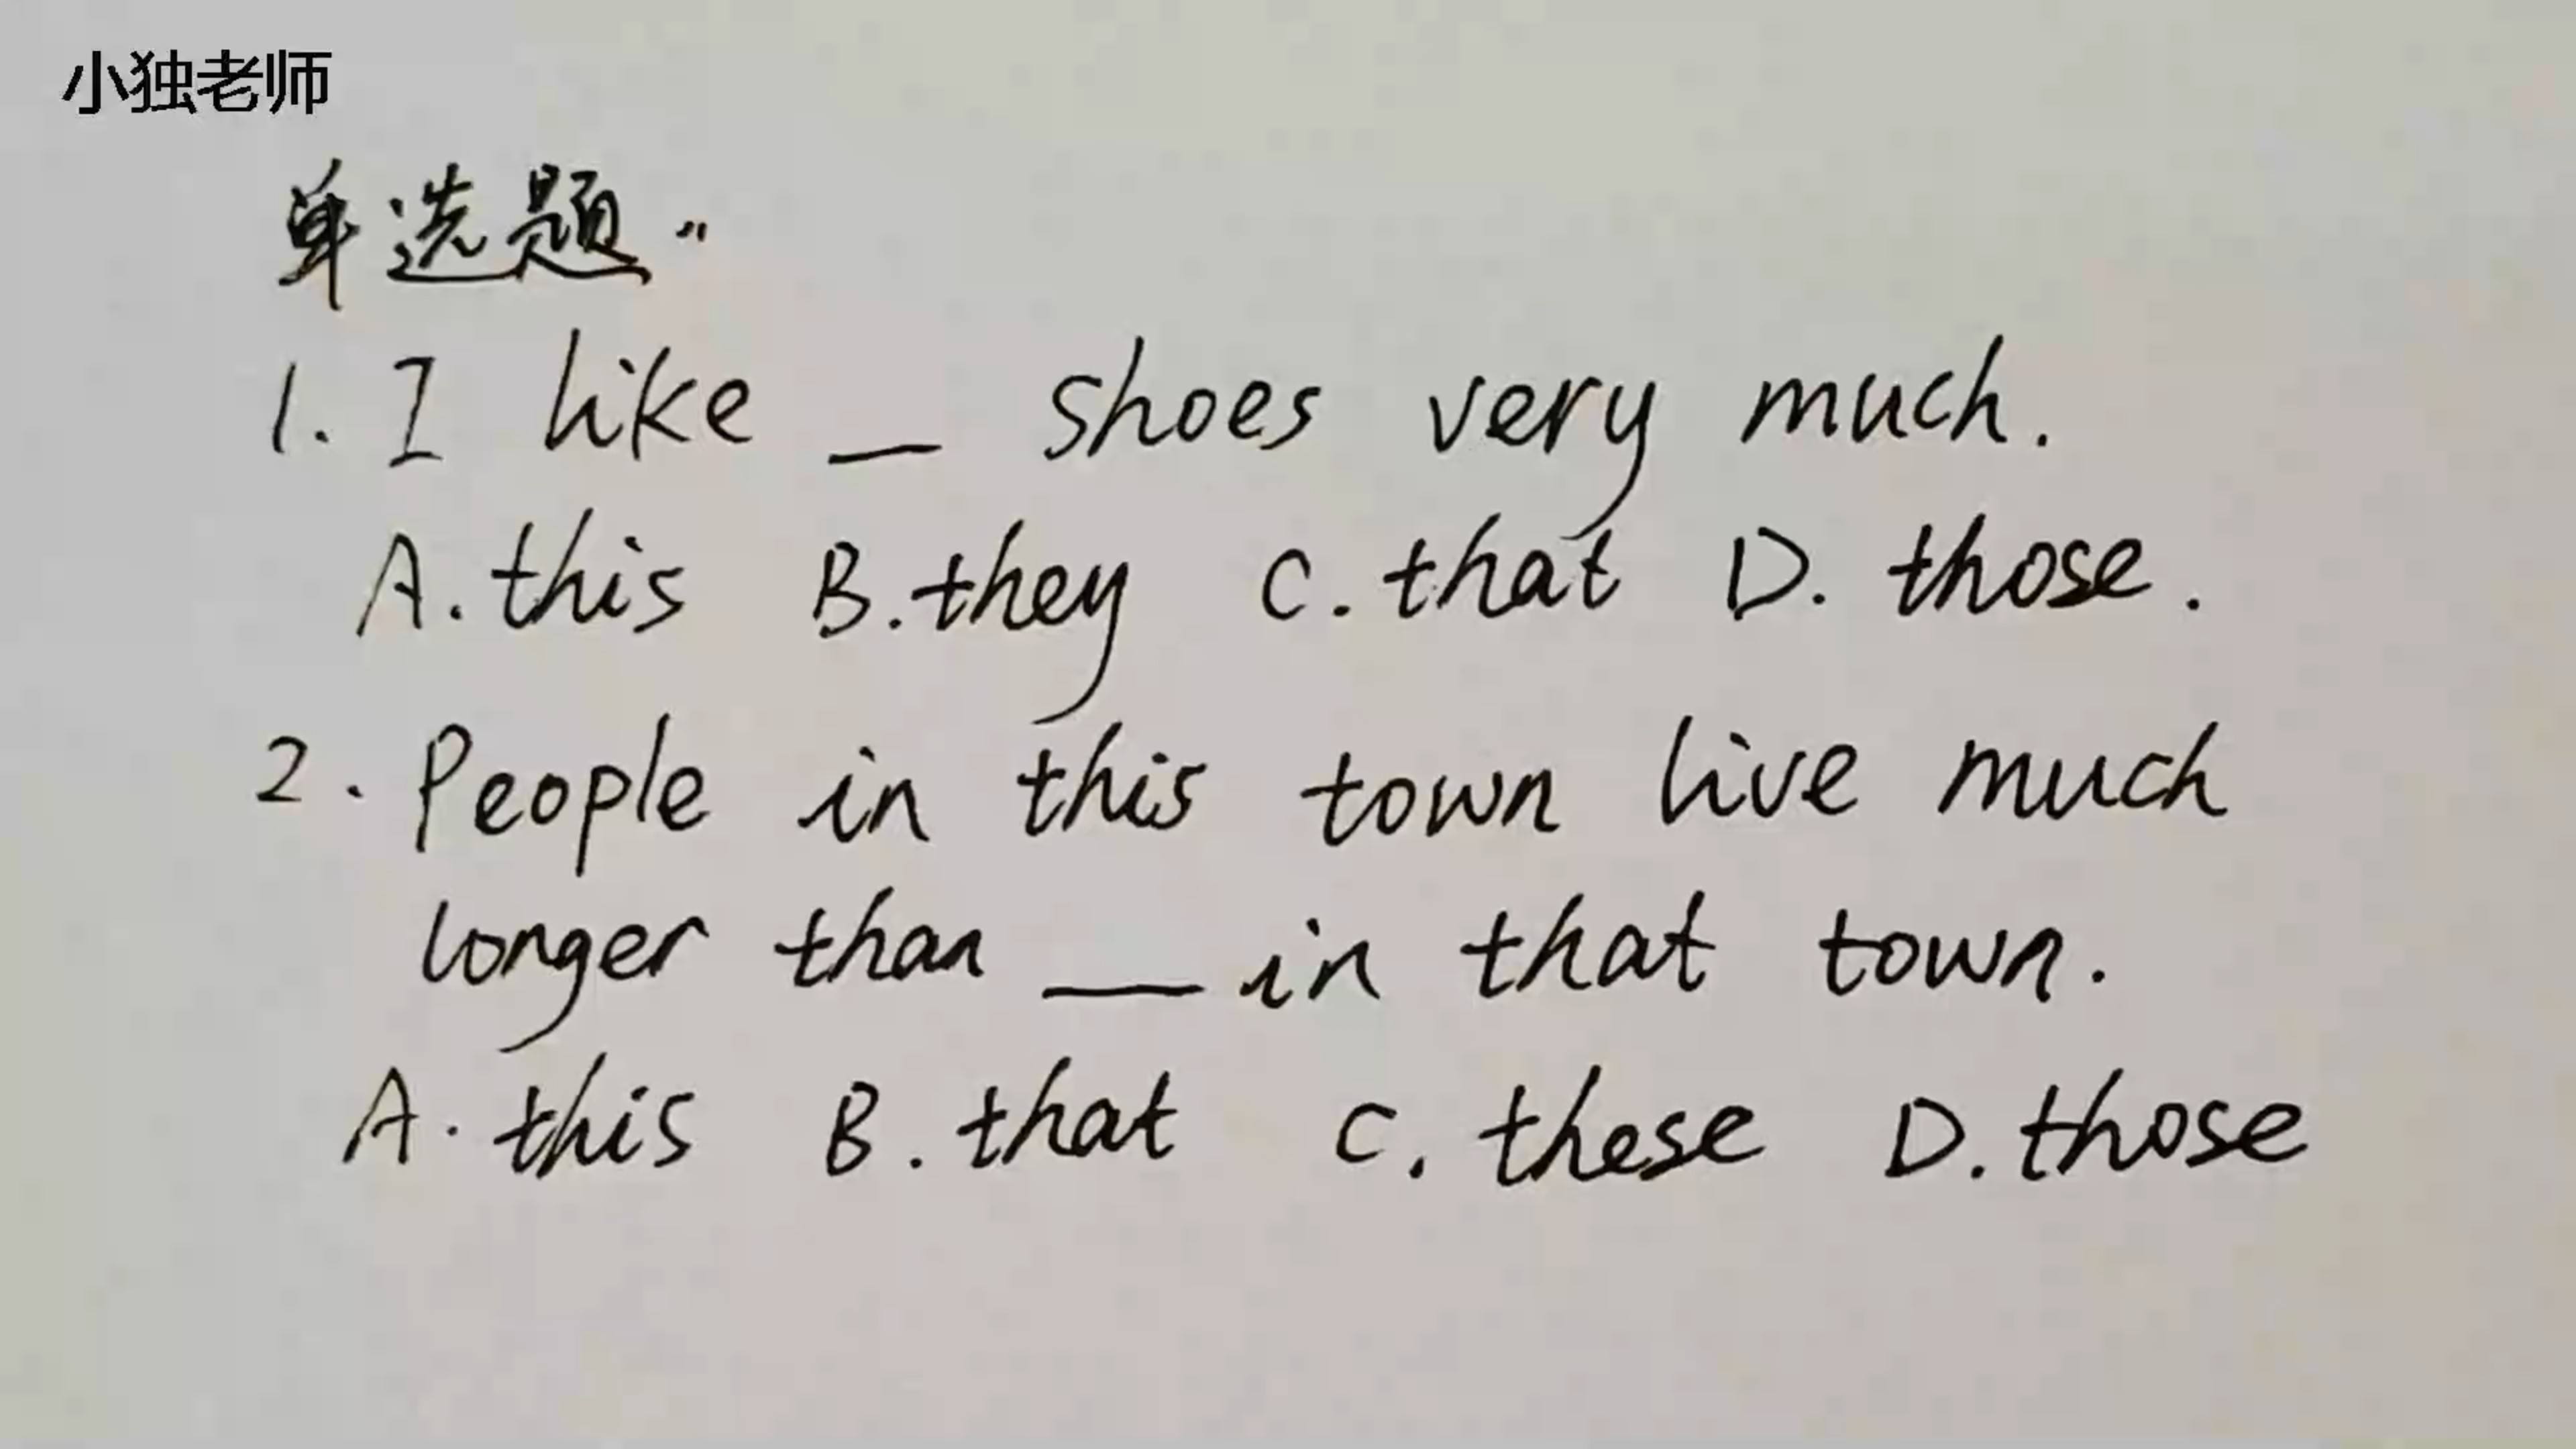 小独老师
单选题:
1. I like __ shoes very much.
A. this B. they C. that D. those.
2. People in this town live much
longer than __ in that town.
A. this B. that C. these D. those